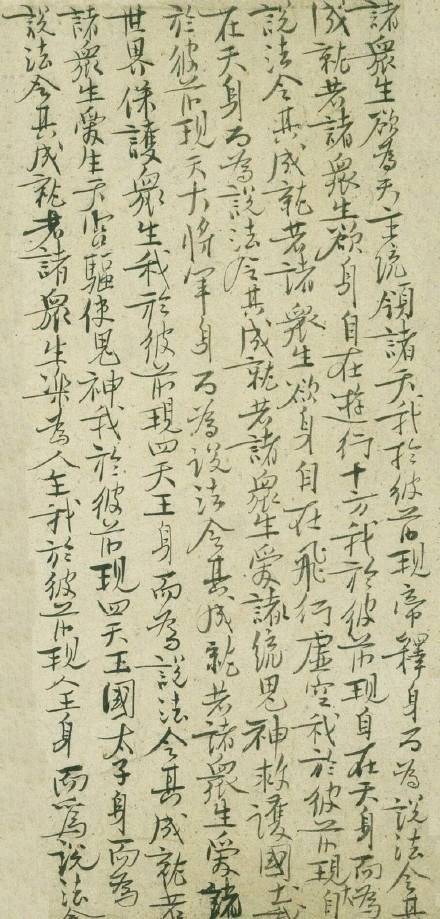 諸衆生欲為天主統領諸天我於彼前現帝釋身而為說法令其
成就若諸衆生欲身自在遊行十方我於彼前現自在天身而為
說法令其成就若諸衆生欲身自在飛行虛空我於彼前現大自
在天身而為說法令其成就若諸衆生愛諸統鬼神救護國土我
於彼前現天大將軍身而為說法令其成就若諸衆生愛諸
世界保護衆生我於彼前現四天王身而為說法令其成就若
諸衆生愛生天宮驅使鬼神我於彼前現四天王國太子身而為
說法令其成就若諸衆生樂為人王我於彼前現人王身而為說法令